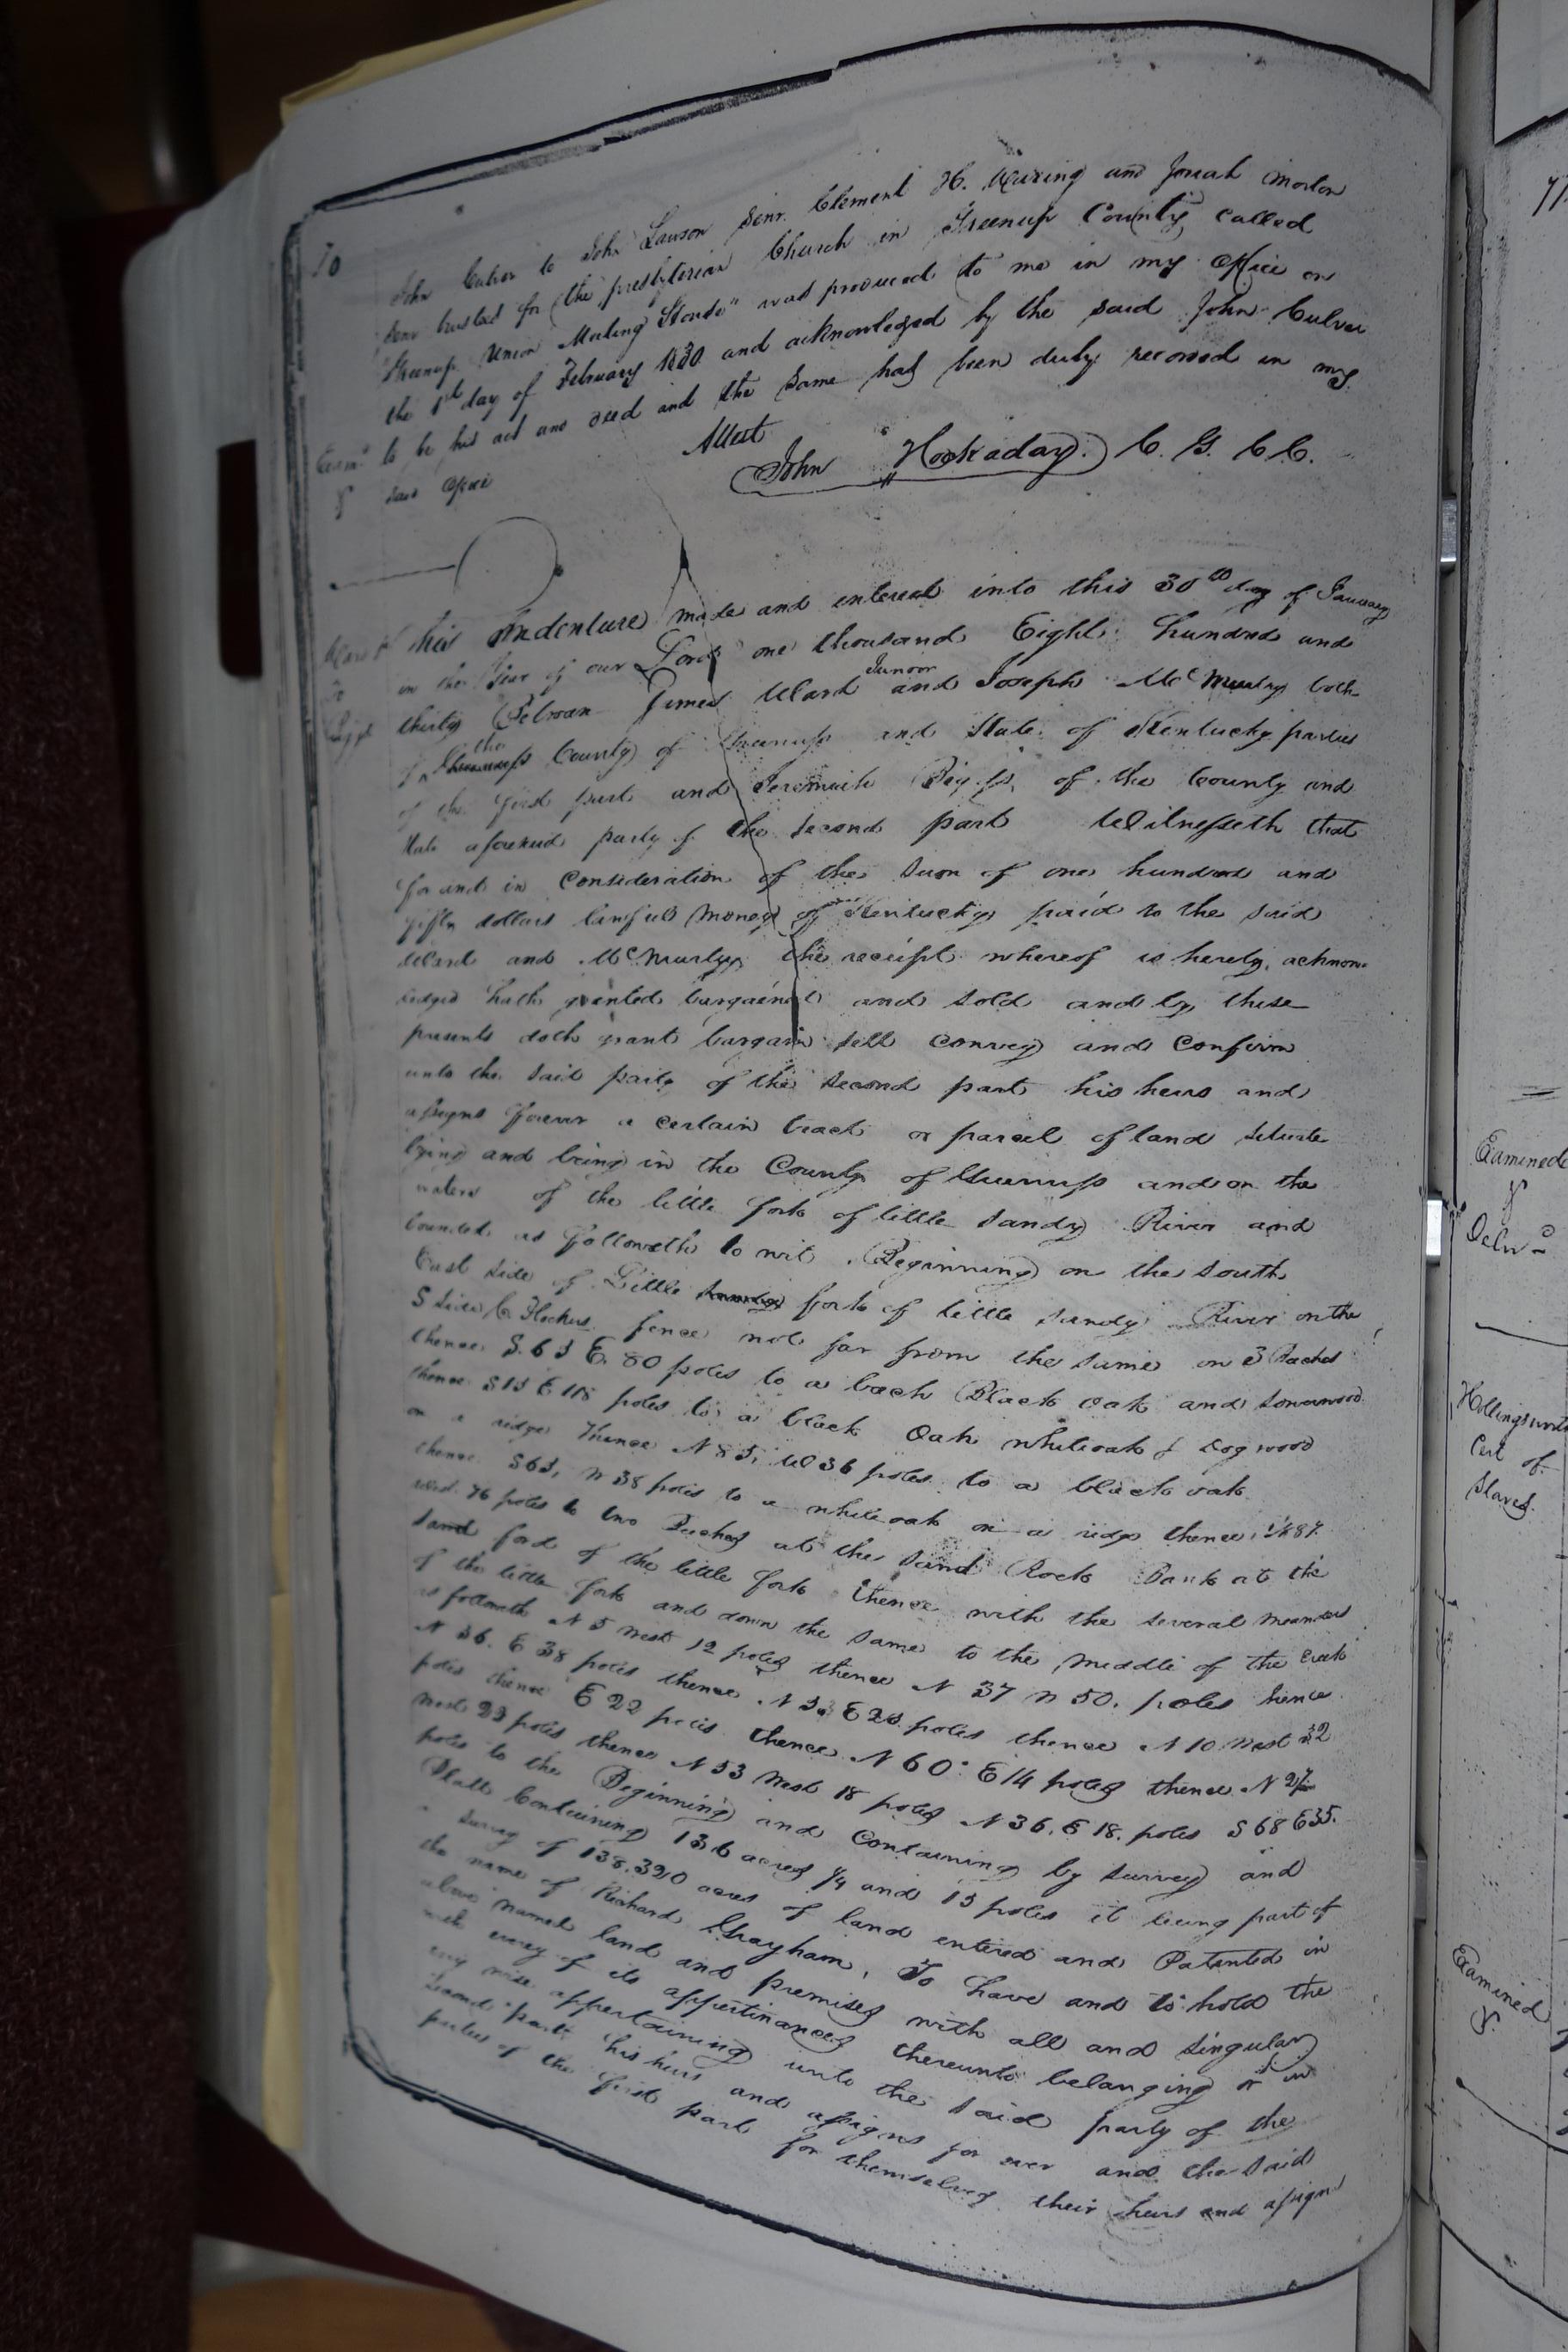 70
John Culver to John Lawson Senr. Clement H. Waring and Josiah Morton
Senr trusted for the presbyterian Church in Greenup County called
"Greenup Union Meeting House" was produced to me in my office on
the 1st day of February 1830 and acknowledged by the said John Culver
to be his act and deed and the same has been duly recorded in my
said office
Exam
Attest
John Hookaday. C. G. C. C.
Ward
To
This Indenture made and entered into this 30th day of January
in the Year of our Lord one thousand Eight hundred and
thirty Between James Ward Junoor and Joseph McMurtry both
of the Greenups County of Greenup and State of Kentucky parties
of the first part and Jeremiah Pigg of the County and
State aforesaid party of the second part Witnesseth that
for and in Consideration of the Sum of one hundred and
fifty dollars lawful Money of Kentucky paid to the said
Ward and McMurtry the receipt whereof is hereby acknow-
ledged hath granted bargained and sold and by these
presents doth grant bargain sell convey and Confirm
unto the said party of the second part his heirs and
assigns forever a certain tract or parcel of land situate
lying and being in the County of Greenup and on the
waters of the little fork of little Sandy River and
bounded as followeth to wit. Beginning on the south
East side of Little Sandy fork of little Sandy River on the
S side fence not far from the same on 3 Beches
thence S. 63 E. 80 poles to a beech Black oak and sowerwood
thence S 15 E 118 poles to a black Oak whiteoak & Dogwood
on a ridge Thence N 85, W 36 poles to a black oak
thence S 63, W 38 poles to a white oak on a ridge thence, N 87.
west 76 poles to two Buches at the Sand Rock Bank at the
sand ford of the little fork thence with the several meanders
of the little fork and down the same to the middle of the creek
as followeth N 5 west 12 poles thence N 37 W 50. poles hence
N 36. E 38 poles thence N E 20 poles thence N 10 west 32
poles thence E 22 poles thence N 60° E 14 poles thence N 27
west 23 poles thence N 53 west 18 poles N 36. E 18. poles S 68 E 35.
poles to the Beginning and Containing by survey and
Platt Containing 136 acres 1/4 and 15 poles it being part of
a survey of 138.320 acres of land entered and Patented in
the name of Richard Grayham, To have and to hold the
above named land and premises with all and singular
with every of its appertinances thereunto belanging or in
any wise appertaining unto the said party of the
second part his heirs and assigns for ever and the said
parties of the first part for themselves their heirs and assigns
Examined
Delivd
Hollingsworth
Cert of
Slaves.
Examined